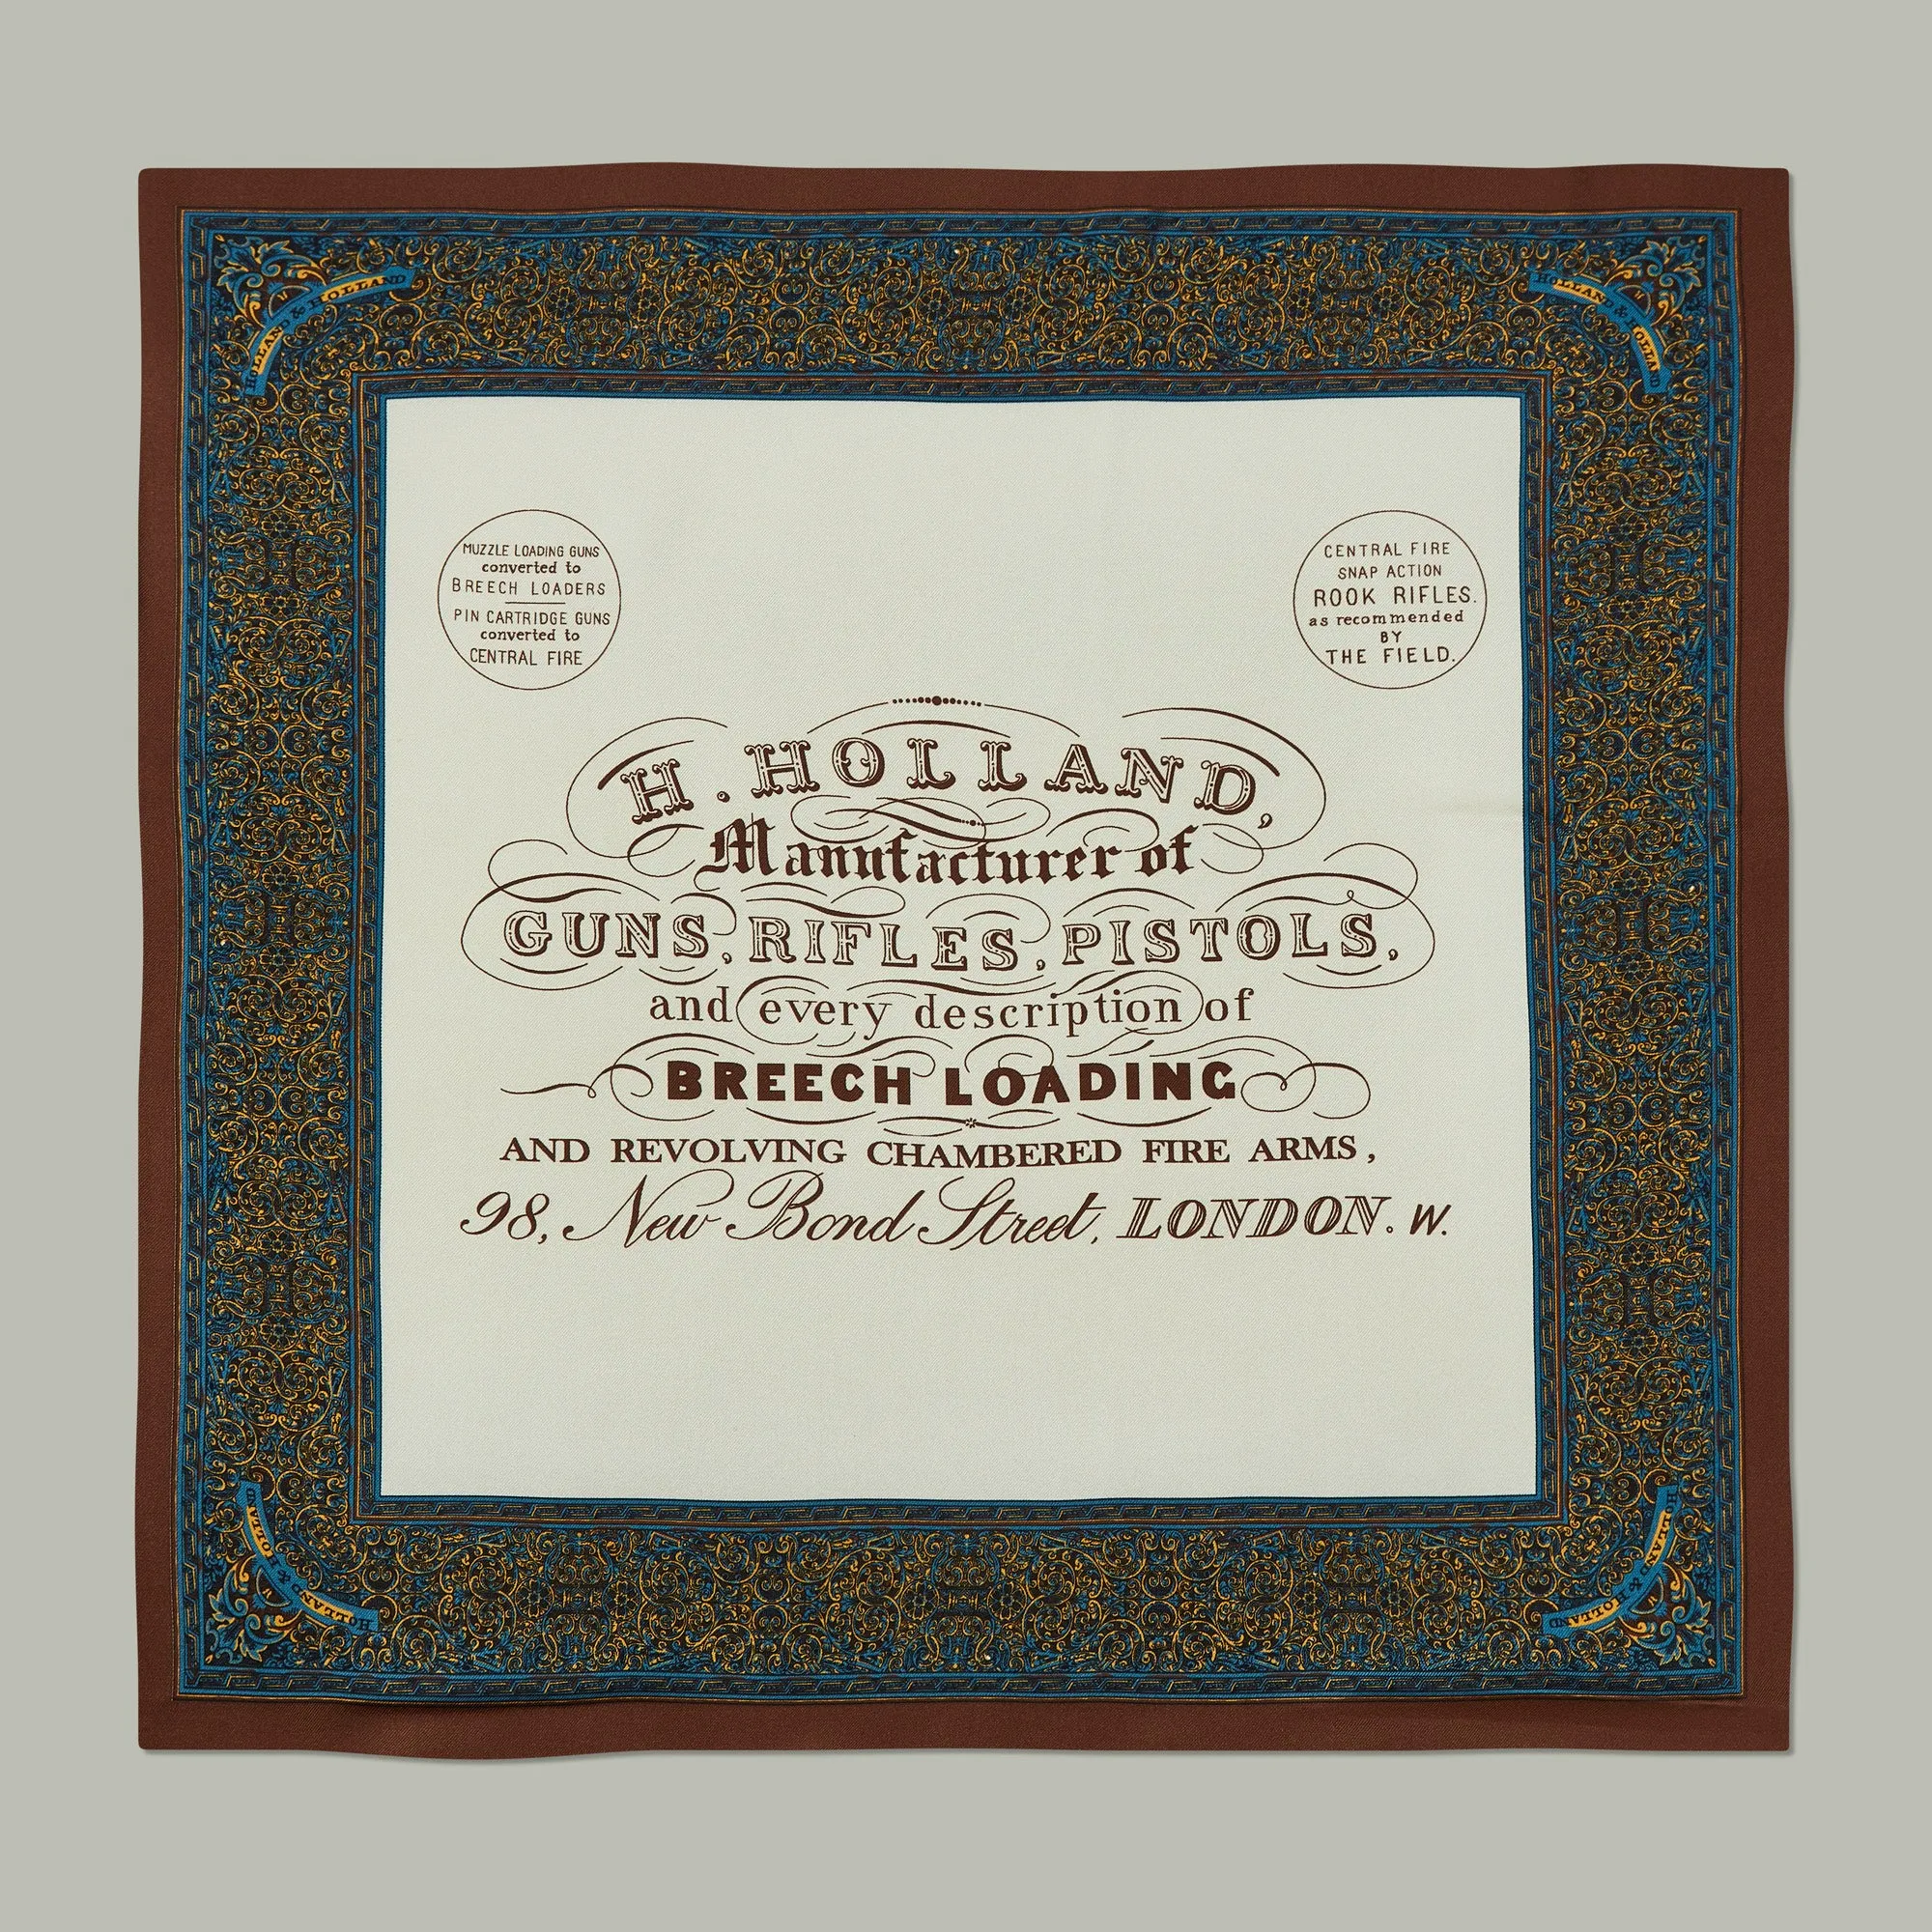 HOLLAND & HOLLAND
HOLLAND & HOLLAND
MUZZLE LOADING GUNS
converted to
BREECH LOADERS
PIN CARTRIDGE GUNS
converted to
CENTRAL FIRE
CENTRAL FIRE
SNAP ACTION
ROOK RIFLES.
as recommended
BY
THE FIELD.
H. HOLLAND,
Manufacturer of
GUNS, RIFLES, PISTOLS,
and every description of
BREECH LOADING
AND REVOLVING CHAMBERED FIRE ARMS,
98, New Bond Street, LONDON. W.
HOLLAND & HOLLAND
HOLLAND & HOLLAND